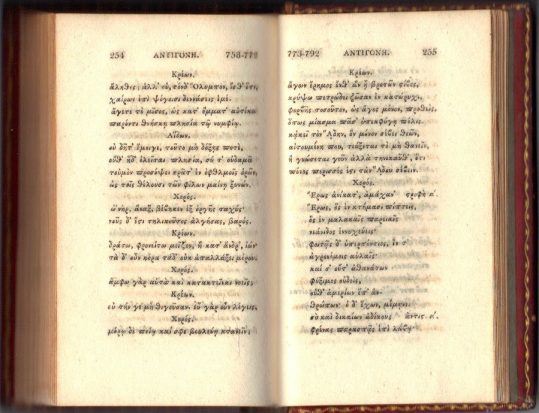 254 ΑΝΤΙΓΟΝΗ. 758-772
Κρέων.
ἄληθες; ἀλλ' οὐ, τόνδ' Ὄλυμπον, ἴσθ' ὅτι,
χαίρων ἐπὶ ψόγοισι δεννάσεις ἐμέ.
ἄγετε τὸ μῖσος, ὡς κατ' ὄμματ' αὐτίκα
παρόντι θνήσκῃ πλησία τῷ νυμφίῳ.
Αἵμων.
οὐ δῆτ' ἔμοιγε, τοῦτο μὴ δόξῃς ποτὲ,
οὔθ' ἥδ' ὀλεῖται πλησία, σύ τ' οὐδαμᾶ
τοὐμὸν προσόψει κρᾶτ' ἐν ὀφθαλμοῖς ὁρῶν,
ὡς τοῖς θέλουσι τῶν φίλων μαίνῃ ξυνών.
Χορός.
ὡνὴρ, ἄναξ, βέβηκεν ἐξ ὀργῆς ταχύς·
νοῦς δ' ἐστὶ τηλικοῦτος ἀλγήσας, βαρύς.
Κρέων.
δράτω, φρονείτω μεῖζον, ἢ κατ' ἄνδρ', ἰών·
τὰ δ' οὖν κόρα τάδ' οὐκ ἀπαλλάξει μόρου.
Χορός.
ἄμφω γὰρ αὐτὰ καὶ κατακτεῖναι νοεῖς;
Κρέων.
οὐ τήν γε μὴ θιγοῦσαν. εὖ γὰρ οὖν λέγεις.
Χορός.
μόρῳ δὲ ποίῳ καί σφε βουλεύῃ κτανεῖν;
773-792 ΑΝΤΙΓΟΝΗ. 255
Κρέων.
ἄγων ἔρημος ἔνθ' ἂν ᾖ βροτῶν στίβος,
κρύψω πετρώδει ζῶσαν ἐν κατώρυχι,
φορβῆς τοσοῦτον, ὡς ἄγος μόνον, προθείς,
ὅπως μίασμα πᾶσ' ὑπεκφύγῃ πόλις·
κἀκεῖ τὸν Ἅδην, ὃν μόνον σέβει θεῶν,
αἰτουμένη που, τεύξεται τὸ μὴ θανεῖν,
ἢ γνώσεται γοῦν ἀλλὰ τηνικαῦθ', ὅτι
πόνος περισσός ἐστι τἀν Ἅδου σέβειν.
Χορός.
Ἔρως ἀνίκατε μάχαν· στροφὴ α΄.
Ἔρως, ὃς ἐν κτήμασι πίπτεις,
ὃς ἐν μαλακαῖς παρειαῖς
νεάνιδος ἐννυχεύεις·
φοιτᾷς δ' ὑπερπόντιος, ἔν τ'
ἀγρονόμοις αὐλαῖς·
καί σ' οὔτ' ἀθανάτων
φύξιμος οὐδείς,
οὔθ' ἁμερίων ἐπ' ἀν-
θρώπων· ὁ δ' ἔχων, μέμηνε.
σὺ καὶ δικαίων ἀδίκους ἀντις. α΄.
φρένας παρασπᾷς ἐπὶ λώβᾳ·